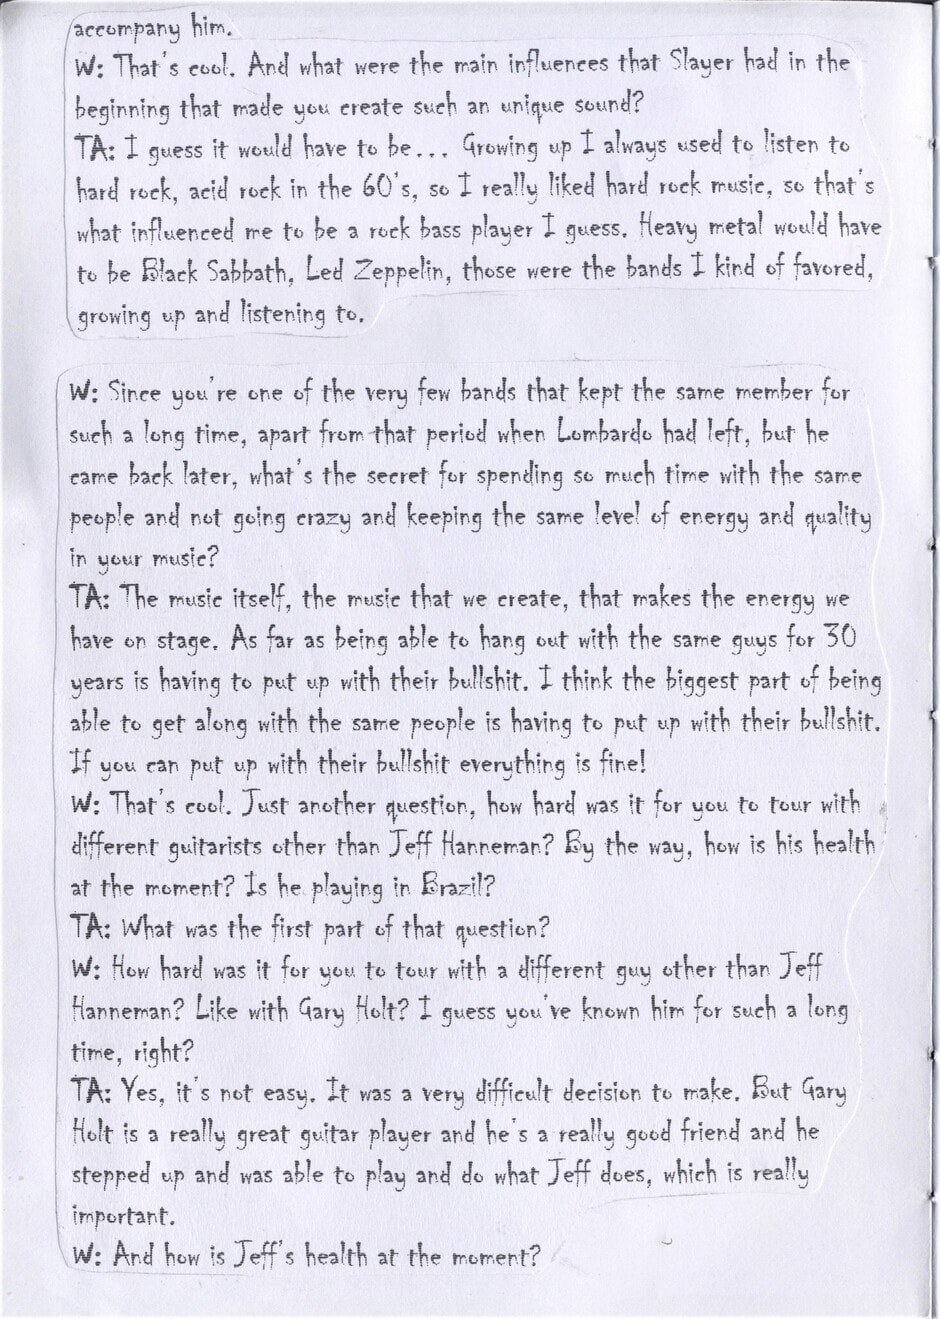 accompany him.
W: That's cool. And what were the main influences that Slayer had in the
beginning that made you create such an unique sound?
TA: I guess it would have to be... Growing up I always used to listen to
hard rock, acid rock in the 60's, so I really liked hard rock music, so that's
what influenced me to be a rock bass player I guess. Heavy metal would have
to be Black Sabbath, Led Zeppelin, those were the bands I kind of favored,
growing up and listening to.
W: Since you're one of the very few bands that kept the same member for
such a long time, apart from that period when Lombardo had left, but he
came back later, what's the secret for spending so much time with the same
people and not going crazy and keeping the same level of energy and quality
in your music?
TA: The music itself, the music that we create, that makes the energy we
have on stage. As far as being able to hang out with the same guys for 30
years is having to put up with their bullshit. I think the biggest part of being
able to get along with the same people is having to put up with their bullshit.
If you can put up with their bullshit everything is fine!
W: That's cool. Just another question, how hard was it for you to tour with
different guitarists other than Jeff Hanneman? By the way, how is his health
at the moment? Is he playing in Brazil?
TA: What was the first part of that question?
W: How hard was it for you to tour with a different guy other than Jeff
Hanneman? Like with Gary Holt? I guess you've known him for such a long
time, right?
TA: Yes, it's not easy. It was a very difficult decision to make. But Gary
Holt is a really great guitar player and he's a really good friend and he
stepped up and was able to play and do what Jeff does, which is really
important.
W: And how is Jeff's health at the moment?